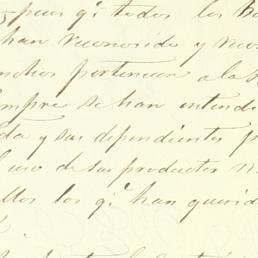 pues q.e todos los
han reconocido y reco
pertenecen a la
empre se han entendi
da y sus dependientes p
l uso de sus productos
llos los q.e han querid